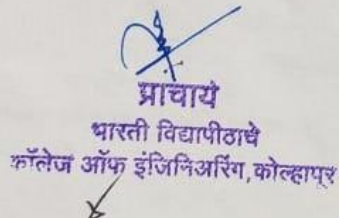 प्राचार्य
भारती विद्यापीठाचे
कॉलेज ऑफ इंजिनिअरिंग,कोल्हापूर